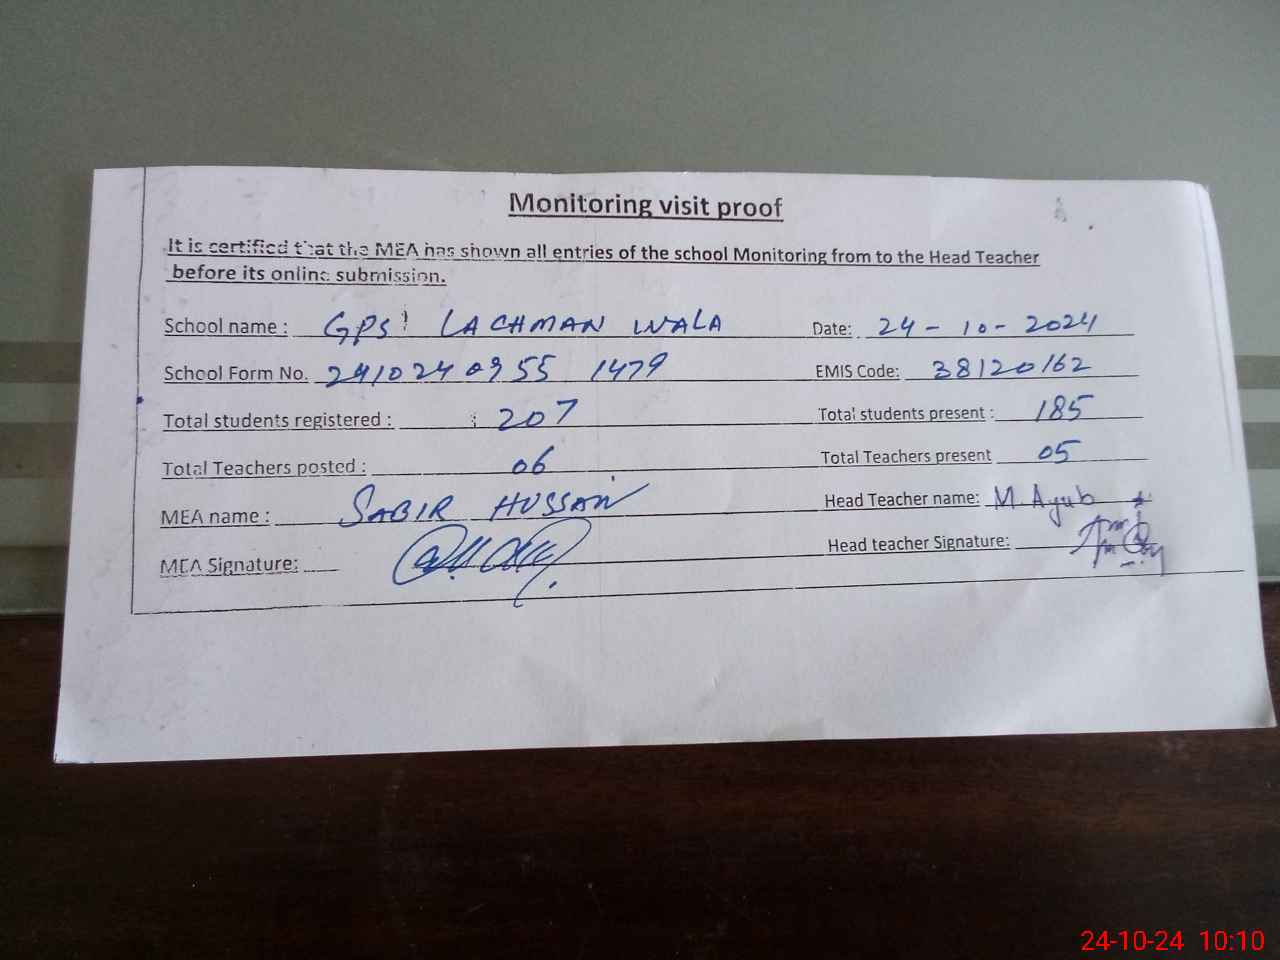 Monitoring visit proof
It is certified that the MEA has shown all entries of the school Monitoring from to the Head Teacher
before its online submission.
School name : GPS LACHMAN WALA Date: 24-10-2024
School Form No. 2410240955 1479 EMIS Code: 38120162
Total students registered : 207 Total students present : 185
Total Teachers posted : 06 Total Teachers present 05
MEA name : SABIR HUSSAN Head Teacher name: M. Ayub
MEA Signature: Head teacher Signature:
24-10-24 10:10